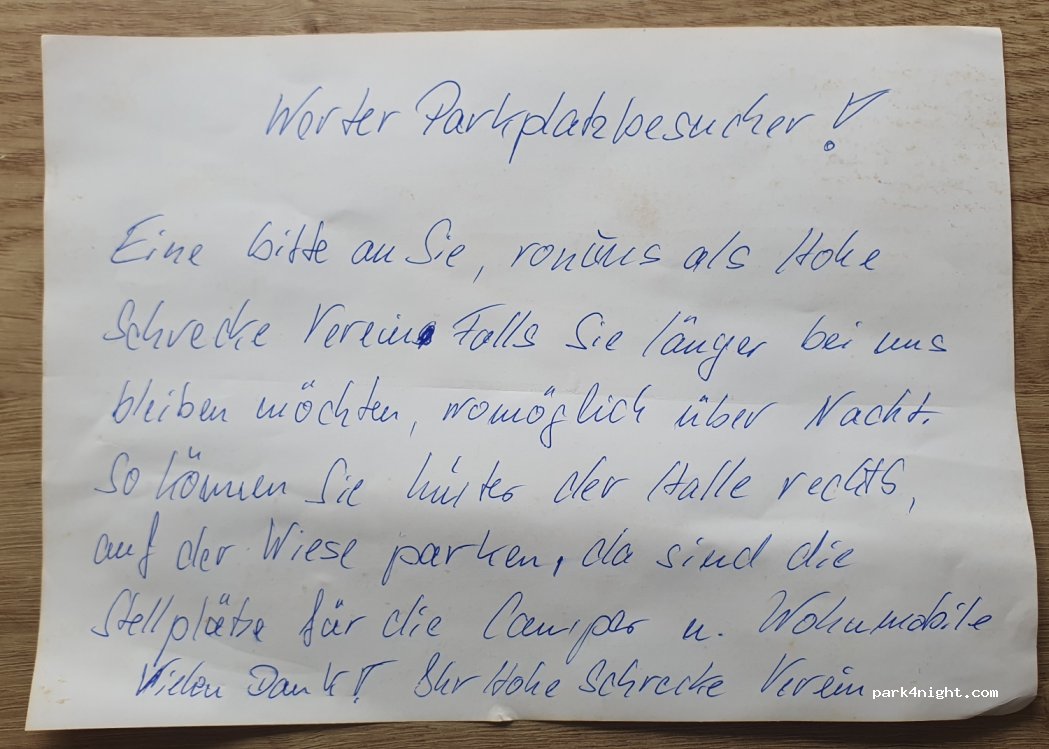 Werter Parkplatzbesucher!
Eine bitte an Sie, von uns als Hohe
Schrecke Verein Falls Sie länger bei uns
bleiben möchten, womöglich über Nacht.
So können Sie hinter der Halle rechts,
auf der Wiese parken, da sind die
Stellplätze für die Camper u. Wohnmobile
Vielen Dank! Ihr Hohe Schrecke Verein
park4night.com